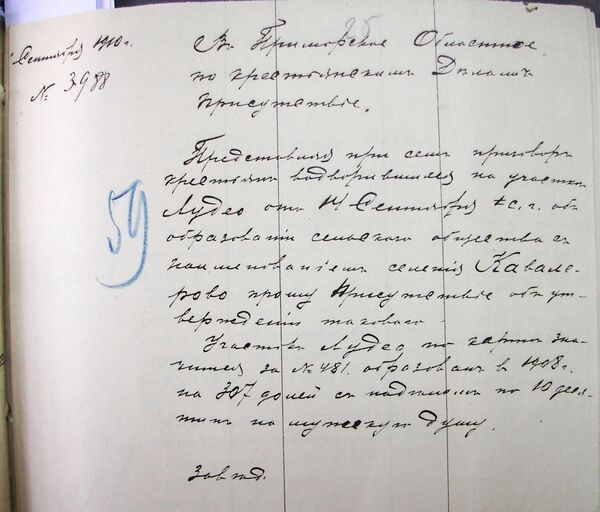 Сентября 1910 г.
№ 3988
Въ Приморское Областное
по крестьянскимъ Дѣламъ
присутствіе.
59
Представляя при семъ приговоръ
крестьянъ водворившихся на участкѣ
Лудео отъ 14 Сентября с. г. объ
образованіи сельскаго общества съ
наименованіемъ селенія Кавале-
рово прошу Присутствіе объ ут-
вержденіи таковаго.
Участокъ Лудео по картѣ зна-
чится за № 481. образованъ въ 1908 г.
на 307 долей съ надѣломъ по 10 деся-
тинъ на мужскую душу.